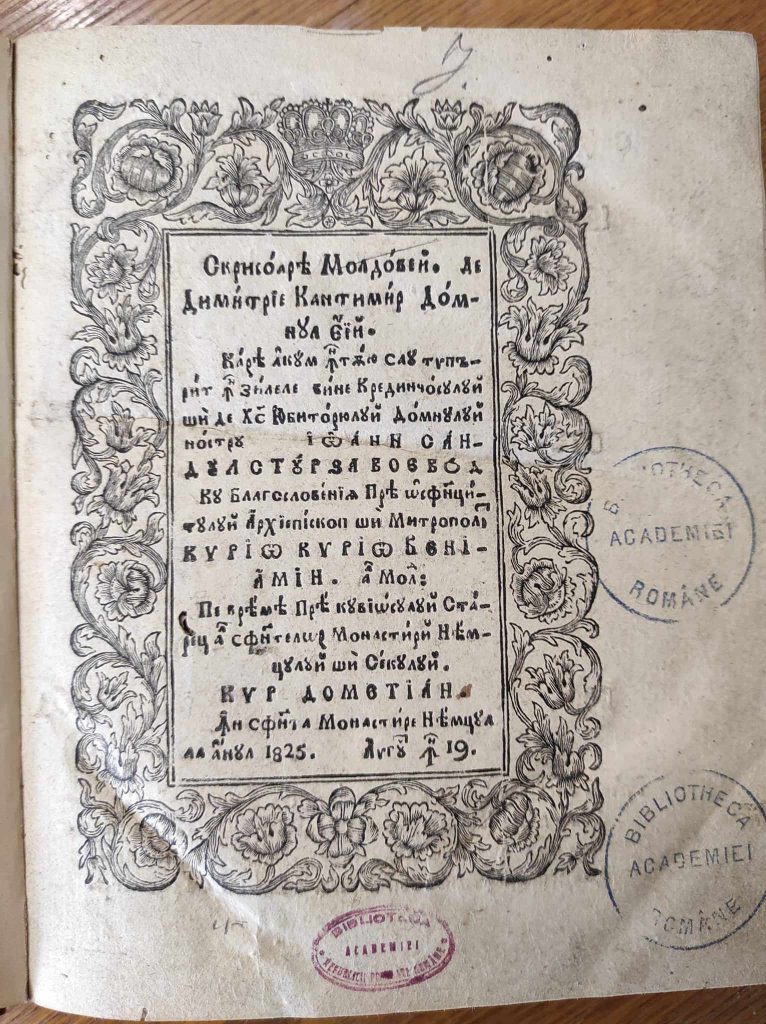 Скрисо́арѣ Молдо́вей. де
Дими́трїе Кантими́р До́м-
нул
Ка́рѣ аку́м
ри́т зи́леле бине Крединчо́сулуй
ши́ де Х҃с Юбито́рюлуй До́мнулуй
ностру ІѠАНН САН-
ДУЛ СТУРЗА ВОЕВОД
Ку Благословенїѧ Прѣ ѡсфинци́-
тулуй Архїепископ ши́ Митропол
КУРІѠ КУРІѠ ВЕНІ-
АМИН. а Мол:
Пе врѣмѣ Прѣ кувїѡсулуй Ста́-
рец а сфинтелѡр Монастири́ Нѣм-
цулуй ши́ Се́кулуй.
КУР ДОМЕТІАН.
Монасти́ре Нѣмцул
ла а́нул 1825. 19.
BIBLIOTHECA
ACADEMIEI
ROMÂNE
BIBLIOTHECA
ACADEMIEI
ROMÂNE
BIBLIOTECA
ACADEMIEI
REPUBLICII POPULARE ROMÂNE